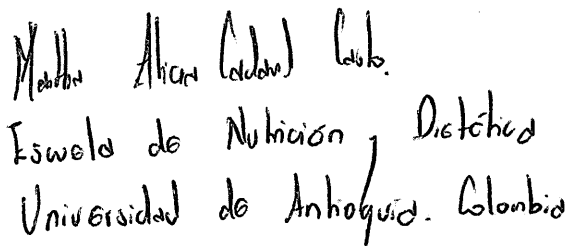 Martha Alicia Cadavid Castro.
Escuela de Nutrición y Dietética
Universidad de Antioquia. Colombia